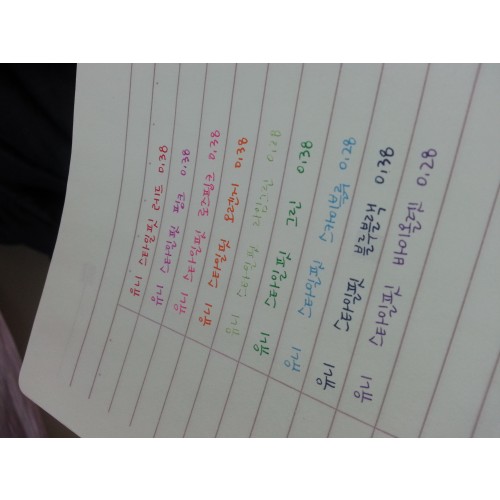 유니 스타일핏 레드 0.38
유니 스타일핏 핑크 0.38
유니 스타일핏 로즈핑크 0.38
유니 스타일핏 오렌지 0.38
유니 스타일핏 라임그린 0.28
유니 스타일핏 그린 0.38
유니 스타일핏 스카이블루 0.28
유니 스타일핏 블루블랙 0.38
유니 스타일핏 바이올렛 0.28